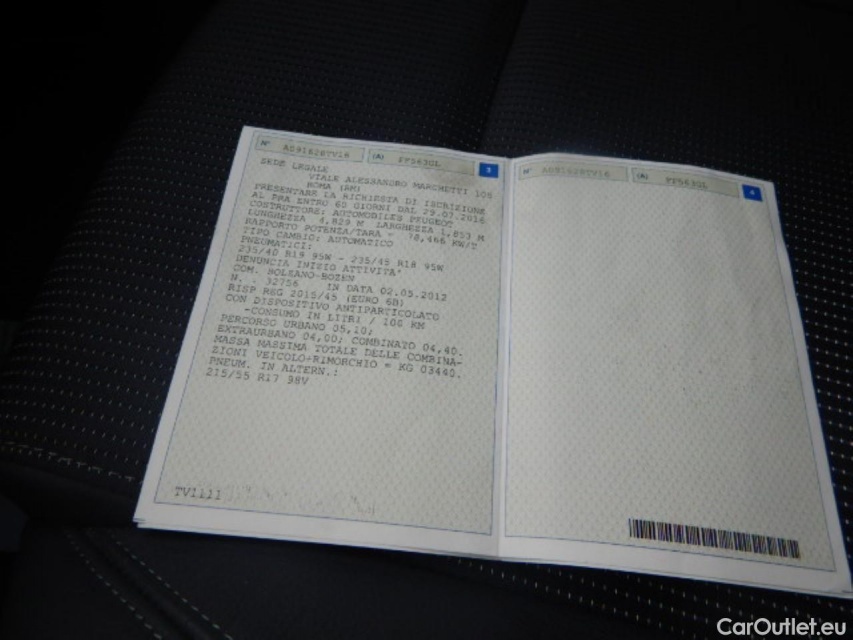 N° (A)
3
SEDE LEGALE
VIALE ALESSANDRO MARCHETTI 105
ROMA (RM)
PRESENTARE LA RICHIESTA DI ISCRIZIONE
AL PRA ENTRO 60 GIORNI DAL 29.07.2016
COSTRUTTORE: AUTOMOBILES PEUGEOT
LUNGHEZZA 4,829 M LARGHEZZA 1,853 M
RAPPORTO POTENZA/TARA = 78,466 KW/T
TIPO CAMBIO: AUTOMATICO
PNEUMATICI:
235/40 R19 95W - 235/45 R18 95W
DENUNCIA INIZIO ATTIVITA'
COM. BOLZANO-BOZEN
N. . 32756 IN DATA 02.05.2012
RISP REG 2015/45 (EURO 6B)
CON DISPOSITIVO ANTIPARTICOLATO
-CONSUMO IN LITRI / 100 KM
PERCORSO URBANO 05,10;
EXTRAURBANO 04,00; COMBINATO 04,40.
MASSA MASSIMA TOTALE DELLE COMBINA-
ZIONI VEICOLO+RIMORCHIO = KG 03440.
PNEUM. IN ALTERN.:
215/55 R17 98V
TV1111
N° (A)
4
CarOutlet.eu